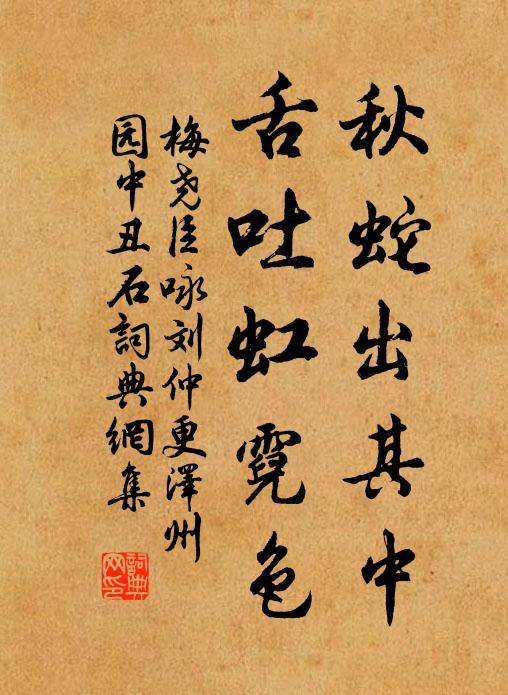 秋蛇出其中
舌吐虹霓色
梅尧臣咏刘仲更泽州
园中丑石詞典網集
詞典网印